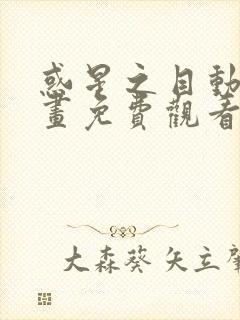 惑星之目動
畫免費觀看
大森葵 矢立肇